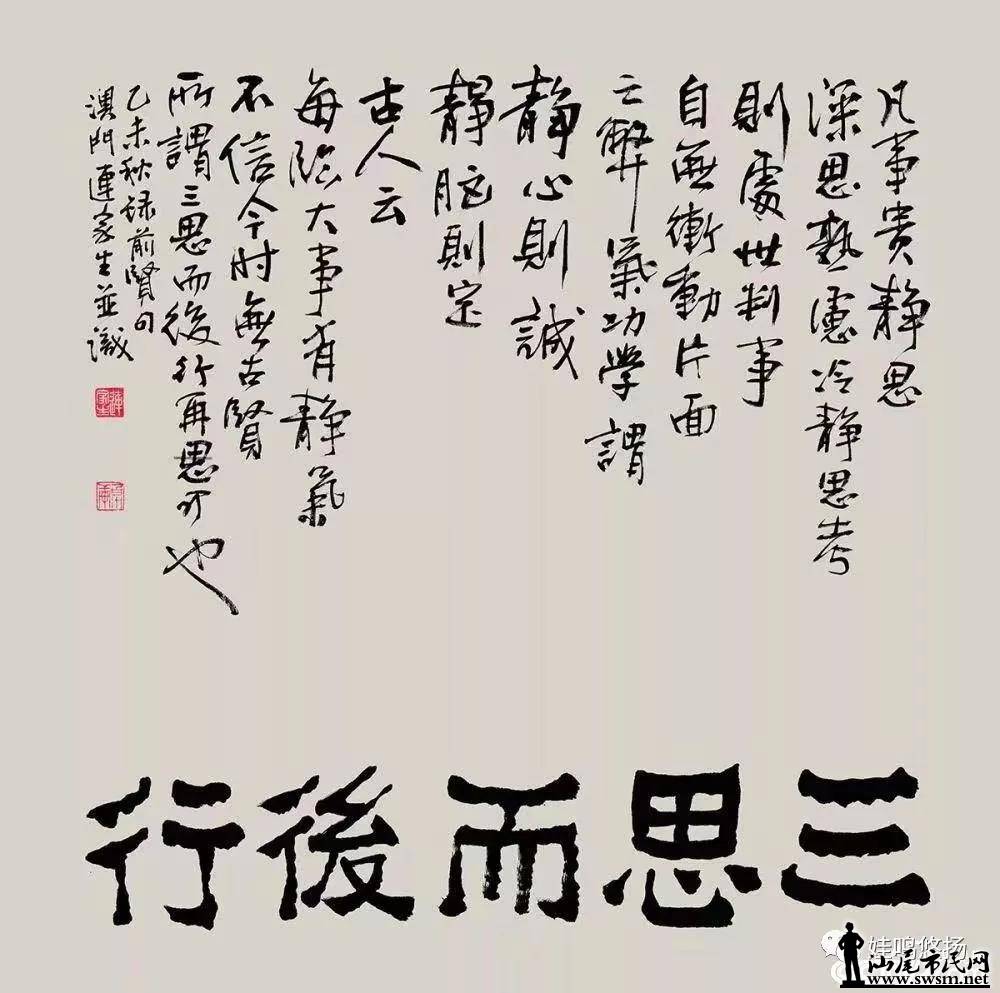 凡事贵静思
深思熟慮冷静思考
則處世判事
自無衝動片面
之弊氣功学謂
静心則誠
静脑則定
古人云
每臨大事有静氣
不信今时無古賢
所謂三思而後行再思可也
乙未秋録前賢句
澳門連家生並識
三思而後行
娃鸣悠扬
汕尾市民网
www.swsm.net